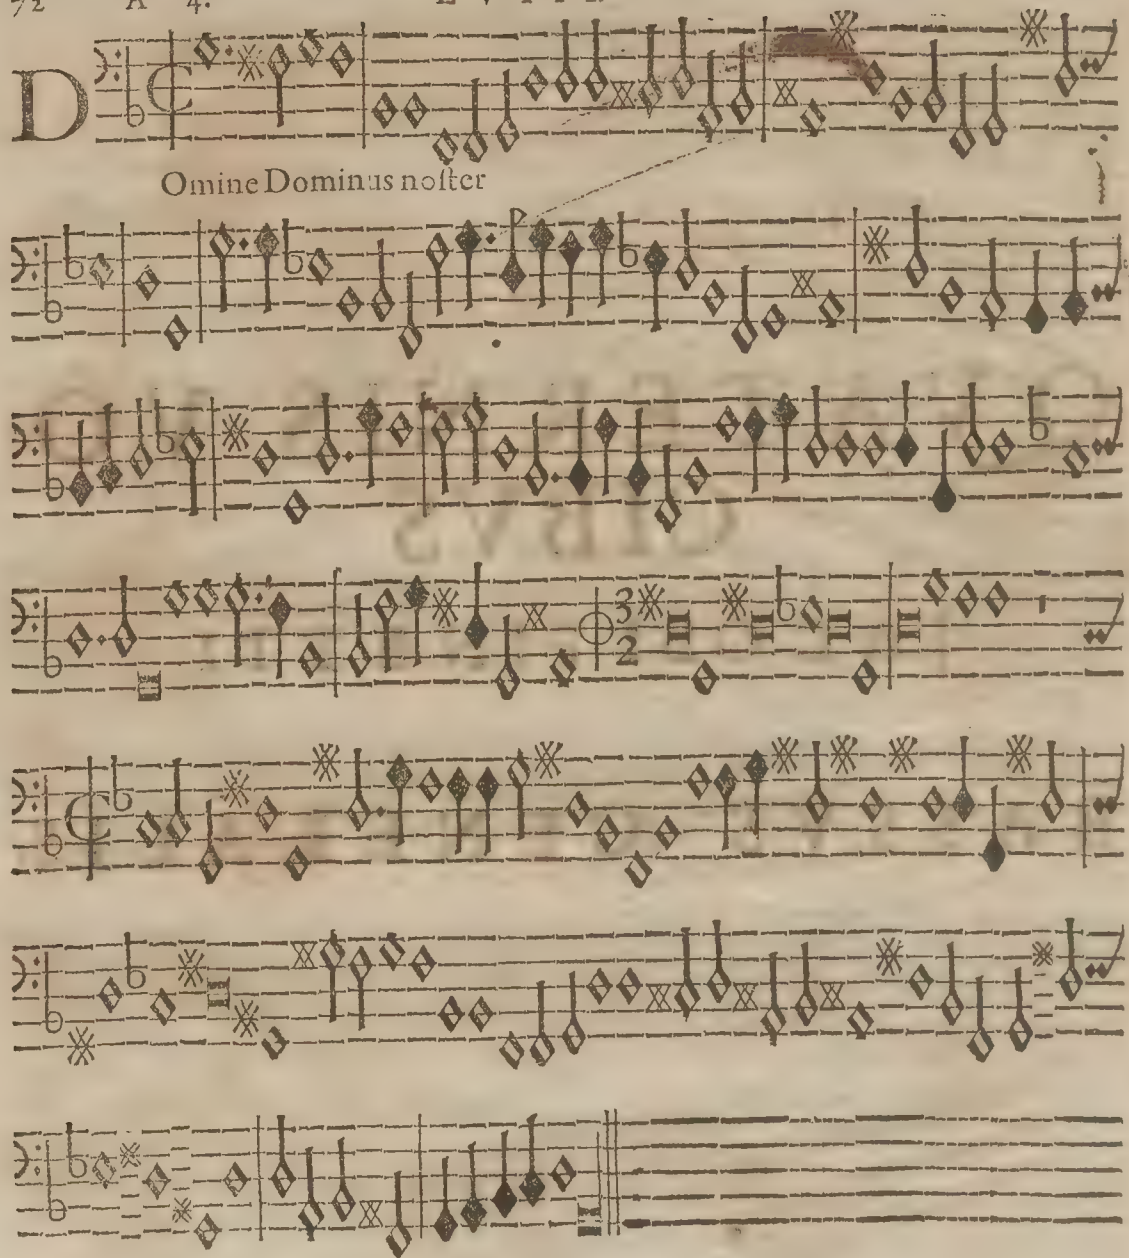 72 A 4.
D
Omine Dominus noſter
3
2